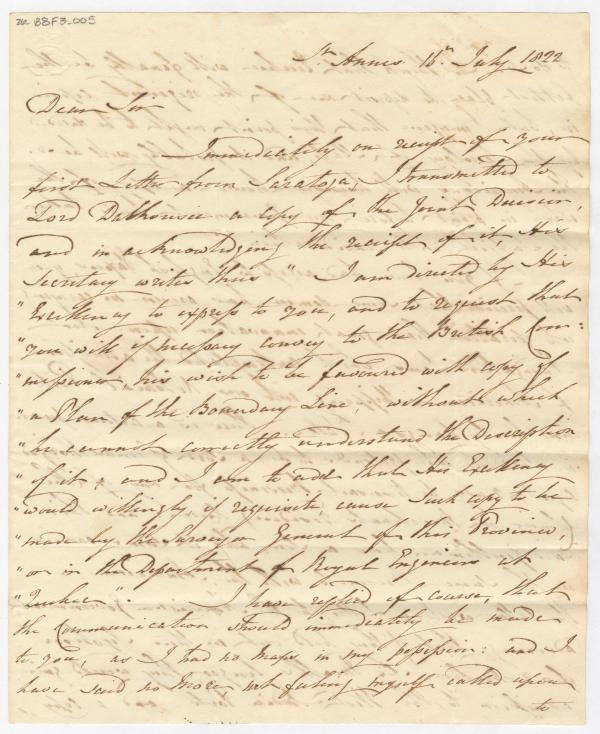 BBF3_005
St. Annes 16th July 1822
Dear Sir
Immediately on receipt of your
first Letter from Saratoga, I transmitted to
Lord Dalhousie a copy of the Joint Decision,
and in acknowledging the receipt of it, His
Secretary writes thus " I am directed by His
"Excellency to express to you, and to request that
"you will if necessary convey to the British Com:
"missioner his wish to be favoured with copy of
"a Plan of the Boundary Line, without which
"he cannot correctly understand the Description
"of it; and I am to add that His Excellency
"would willingly, if requisite cause such copy to be
"made by the Surveyor General of this Province,
"or in the Department of Royal Engineers at
"Quebec". I have replied of course, that
the Communication should immediately be made
to you, as I had no maps in my possession: and I
have said no more not feeling myself called upon
to